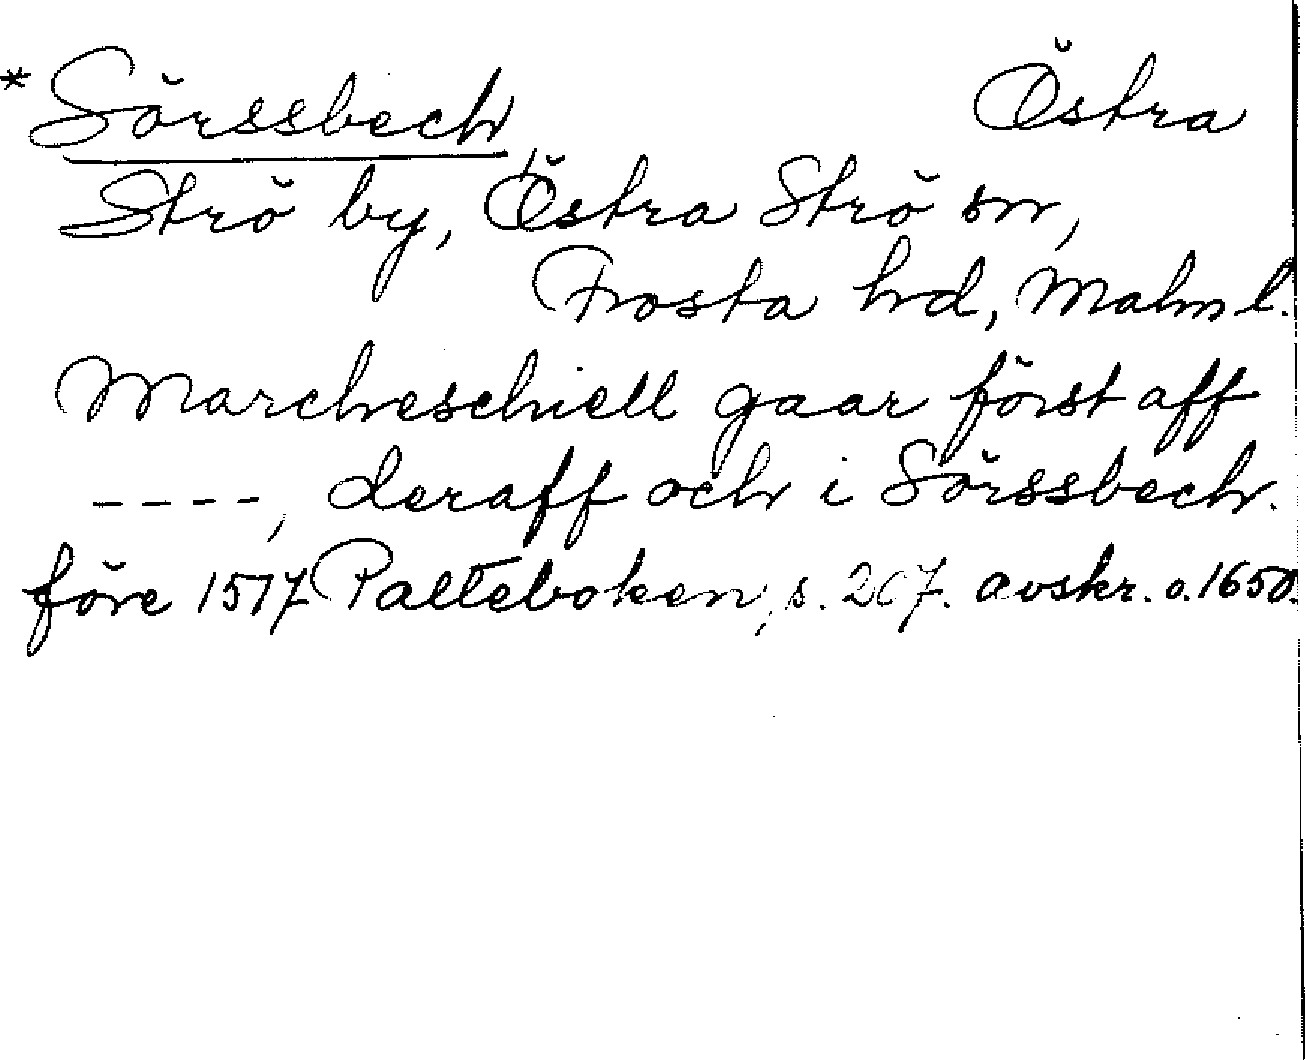 *Sörssbech, Östra
Strö by, Östra Strö sn,
Frosta hd, Malm l.
Marcheschiell gaar först aff
----, deraff och i Sörssbech.
före 1517 Palteboken, s. 207. avskr. o. 1650.